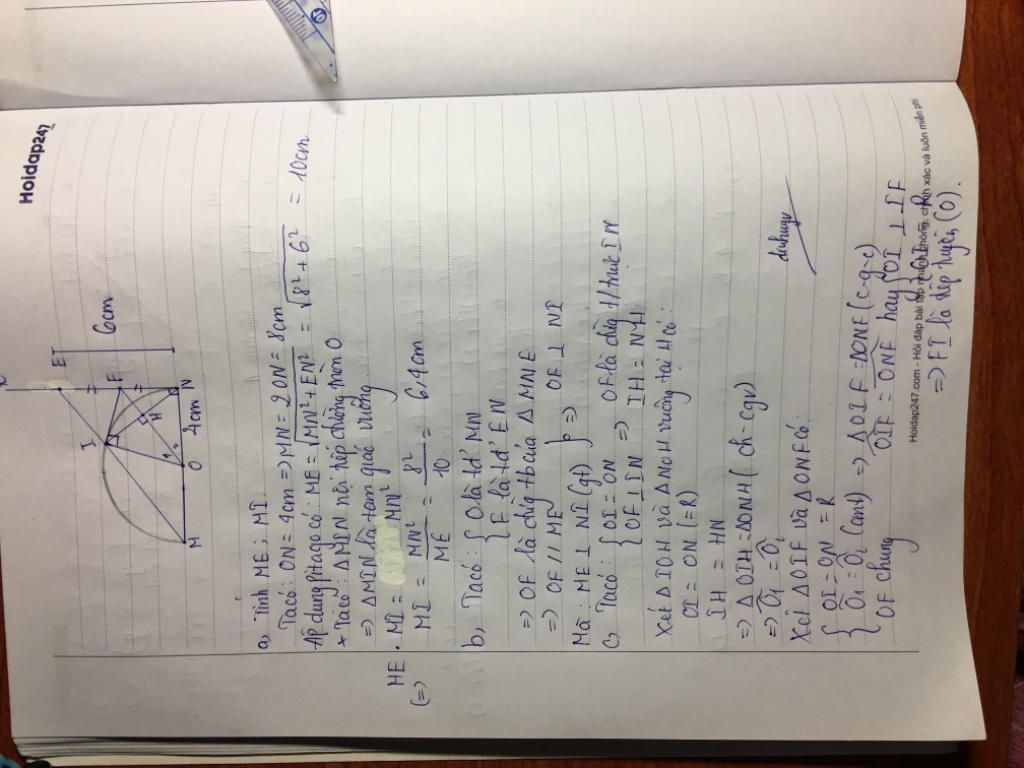 Hoidap247
E
6cm
I
F
H
N
M
O
4cm
a, Tính ME; MI.
Ta có: ON = 4cm => MN = 2ON = 8cm
Áp dụng Pitago có: ME = √MN²+EN² = √8²+6² = 10cm
* Ta có: Δ MIN nội tiếp đường tròn O
=> Δ MIN là tam giác vuông
ME . MI = MN²
(=> MI = MN²/ME = 8²/10 = 6,4cm
b, Ta có: { O là tđ' MN
F là tđ' EN
=> OF là đường tb của Δ MNE
=> OF // ME
Mà: ME ⊥ NI (gt) } => OF ⊥ NI
c, Ta có: { OI = ON
OF ⊥ IN => OF là đường t/trực IN
IH = NH
Xét Δ IOH và Δ NOH vuông tại H có:
OI = ON (=R)
IH = HN
=> Δ OIH = ΔONH ( ch - cgv)
=> Ô₁ = Ô₂
Xét Δ OIF và Δ ONF có:
{ OI = ON = R
Ô₁ = Ô₂ (cmt) => Δ OIF = ΔONF (c-g-c)
OF chung
OIF = ONF hay { OI ⊥ IF
=> FI là tiếp tuyến (O).
Hoidap247.com - Hỏi đáp bài tập miễn phí, chính xác và luôn miễn phí